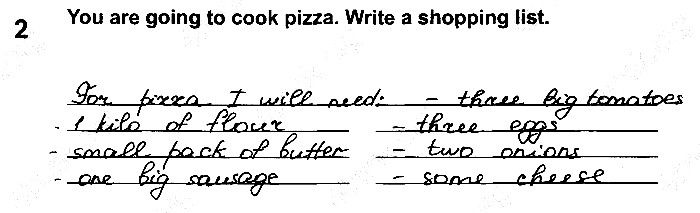 2 You are going to cook pizza. Write a shopping list.
For pizza I will need: - three big tomatoes
- 1 kilo of flour - three eggs
- small pack of butter - two onions
- one big sausage - some cheese